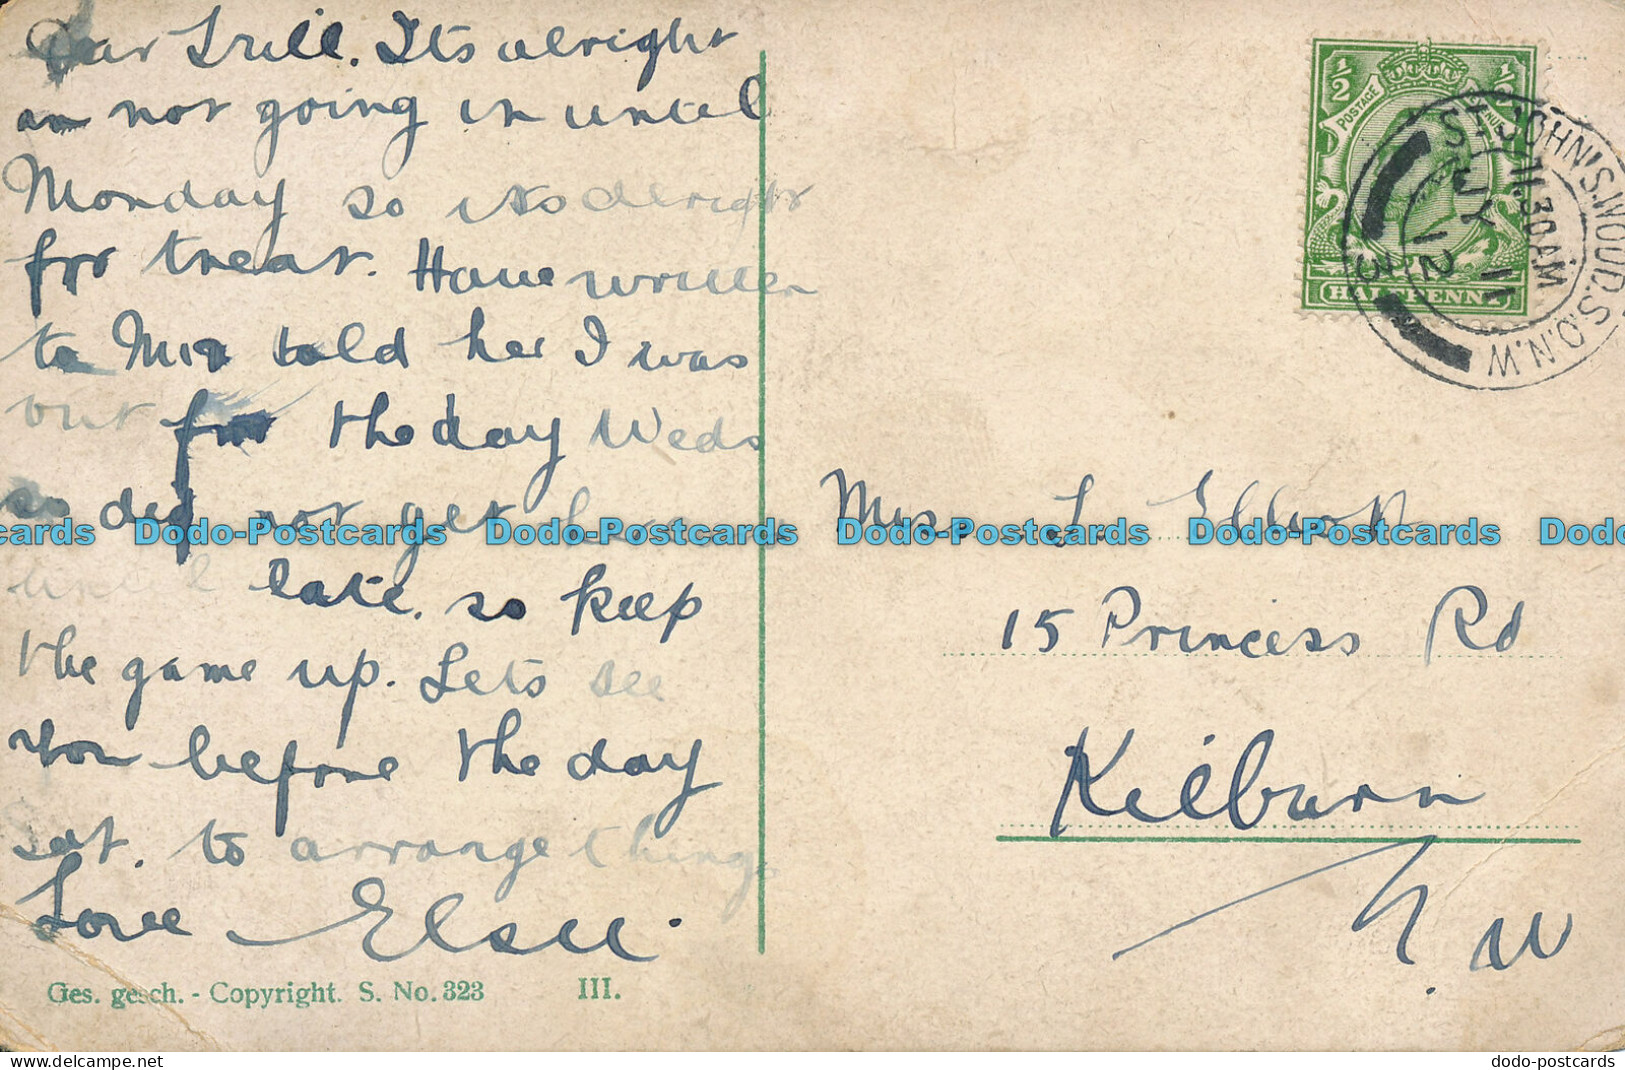 Dear Lrill. Its alright
am not going in until
Monday so its alright
for treat. Have written
to Mrs told her I was
out for the day Weds
so did not get
until late. so keep
the game up. Lets see
you before the day
Sat. to arrange things
Love Elsie.
Ges. gesch. - Copyright. S. No. 323 III.
½ ½
POSTAGE
HALFPENNY
ST JOHN'S.WOOD.S.O.N.W
11.30AM
JY 11
12
3
Miss L Elliott
15 Princess Rd
Kilburn
N.W
Dodo-Postcards Dodo-Postcards Dodo-Postcards Dodo-Postcards Dodo
dodo-postcards